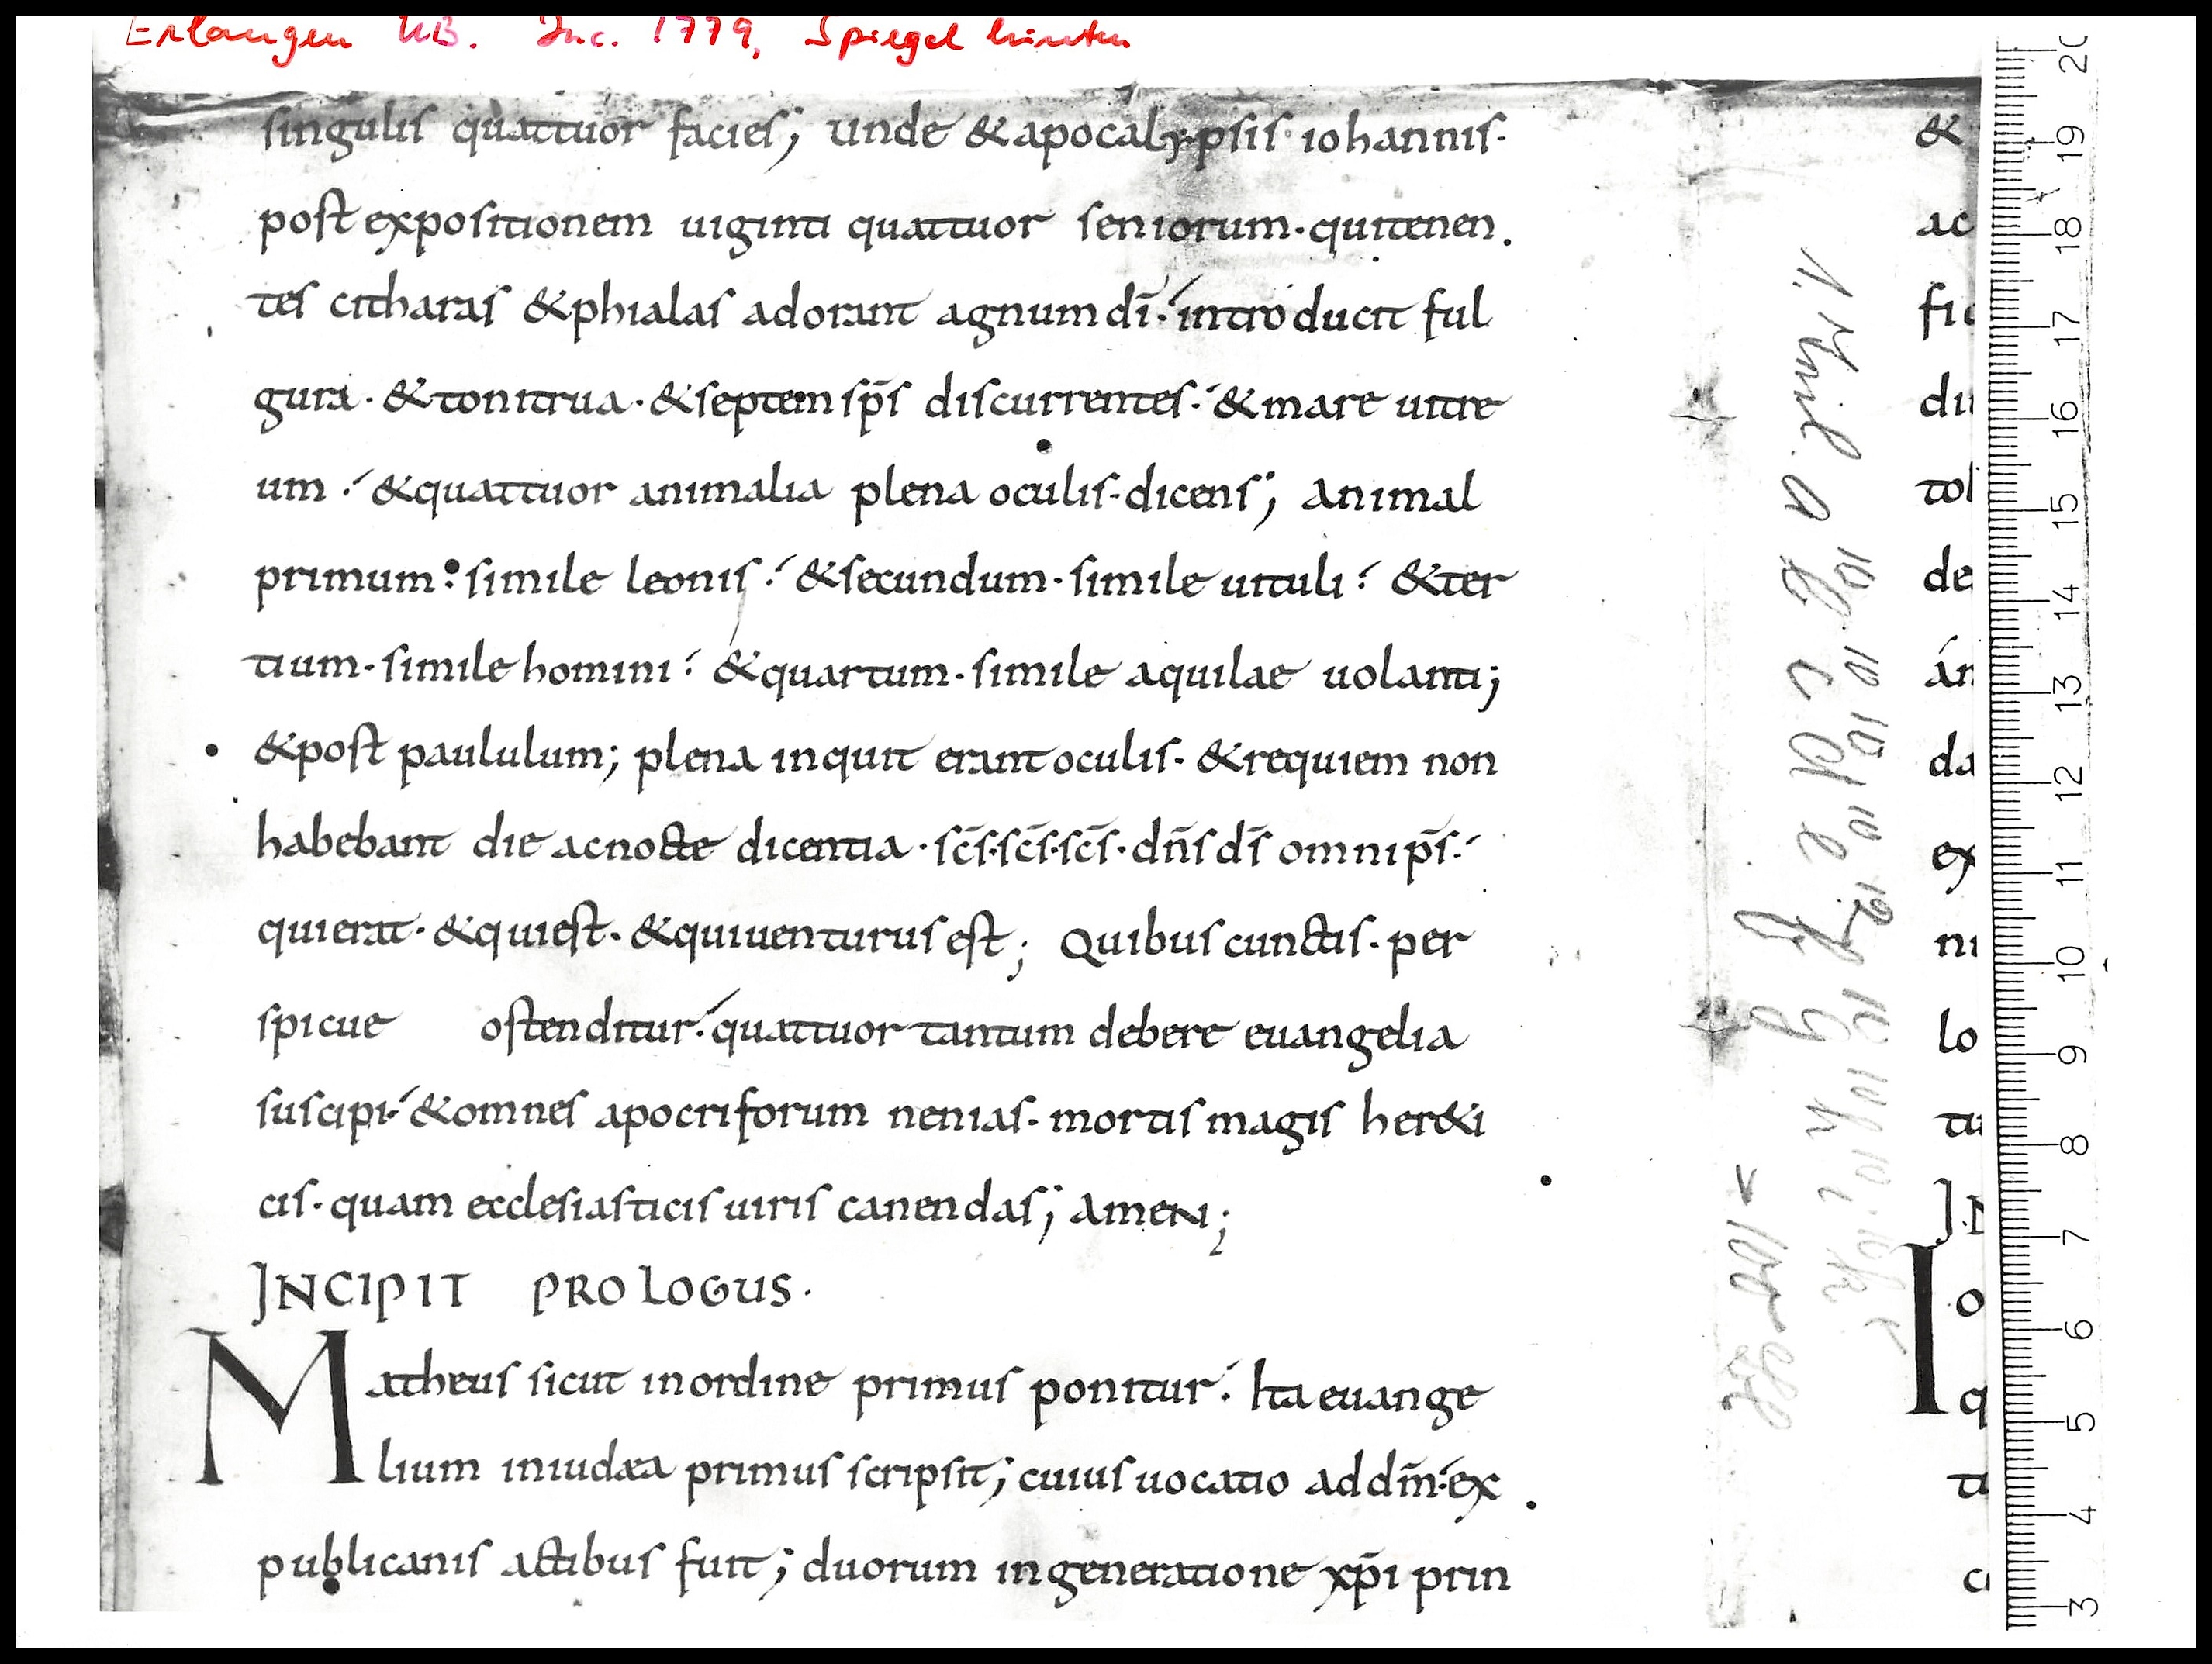 Erlangen UB. Inc. 1779, Spiegel hinten
singulis quattuor facies; unde & apocalypsis· iohannis·
post expositionem uiginti quattuor seniorum· qui tenen
tes citharas & phialas adorant agnum dī· introducit ful
gura· & tonitrua· & septem sp̄s discurrentes· & mare uitre
um· & quattuor animalia plena oculis· dicens; animal
primum: simile leonis· & secundum· simile uituli· & ter
tium· simile homini· & quartum· simile aquilae uolanti;
& post paululum; plena inquit erant oculis· & requiem non
habebant die ac nocte dicentia· sc̄s· sc̄s· sc̄s· dn̄s ds̄ omnip̄s·
qui erat· & qui est· & qui uenturus est; Quibus cunctis· per
spicue ostenditur· quattuor tantum debere euangelia
suscipi· & omnes apocriforum nenias· mortis magis her&i
cis· quam ecclesiasticis uiris canendas; AMEN;
INCIPIT PROLOGUS·
Matheus sicut in ordine primus ponitur· Ita euange
lium in iudæa primus scripsit; cuius uocatio ad dm̄· ex
publicanis actibus fuit; duorum in generatione xp̄i prin
&
ac
fi
du
tol
de
án
da
ex
ni
lo
tu
IN
I o
q
ti
c
20
19
18
17
16
15
14
13
12
11
10
9
8
7
6
5
4
3